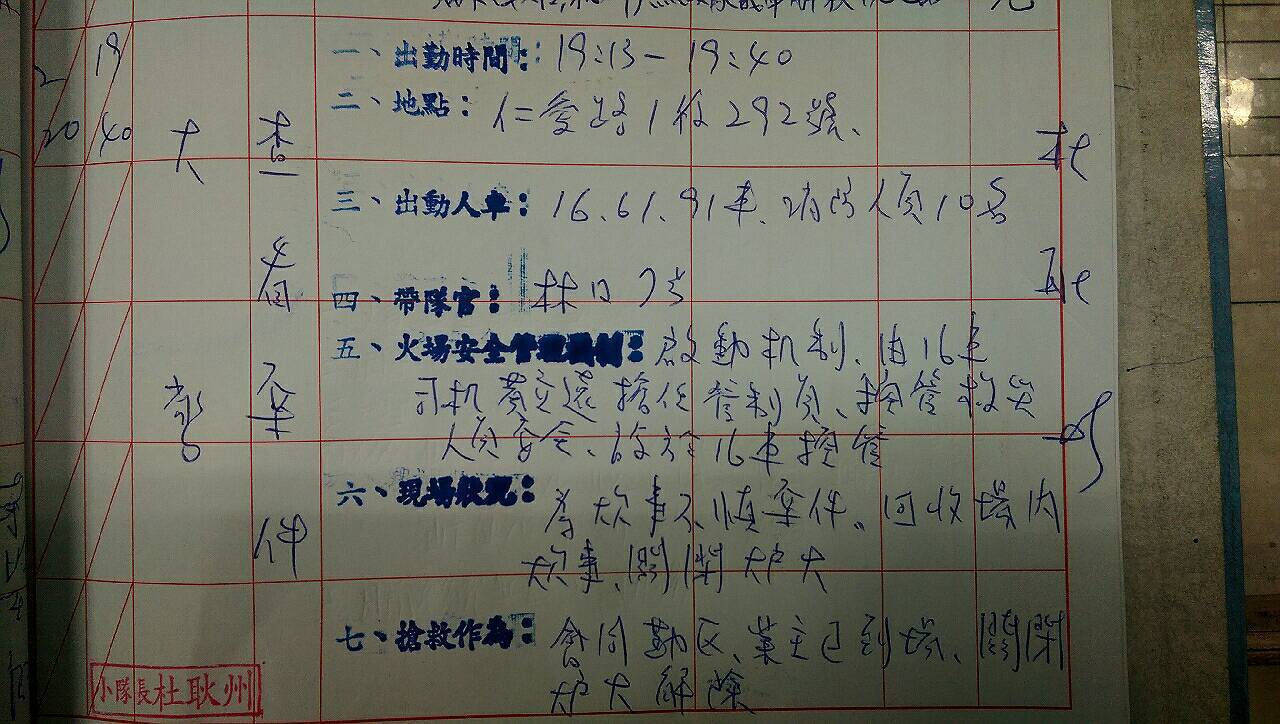 一、出勤時間：19:13－19:40
二、地點：仁愛路1段292號、
三、出動人車：16、61、91車、消防人員10名
四、帶隊官：林日
五、火場安全管理機制：啟動机制、由16車
司机黃立遠擔任管制員、換管救災
人員安全、設於16車換管
六、現場狀況：為炊事不慎案件、回收場內
炊事、關閉炉火
七、搶救作為：會同勤區、業主已到場、關閉
炉火解除
2 19
20 40
火警
查看案件
杜耿州
小隊長杜耿州